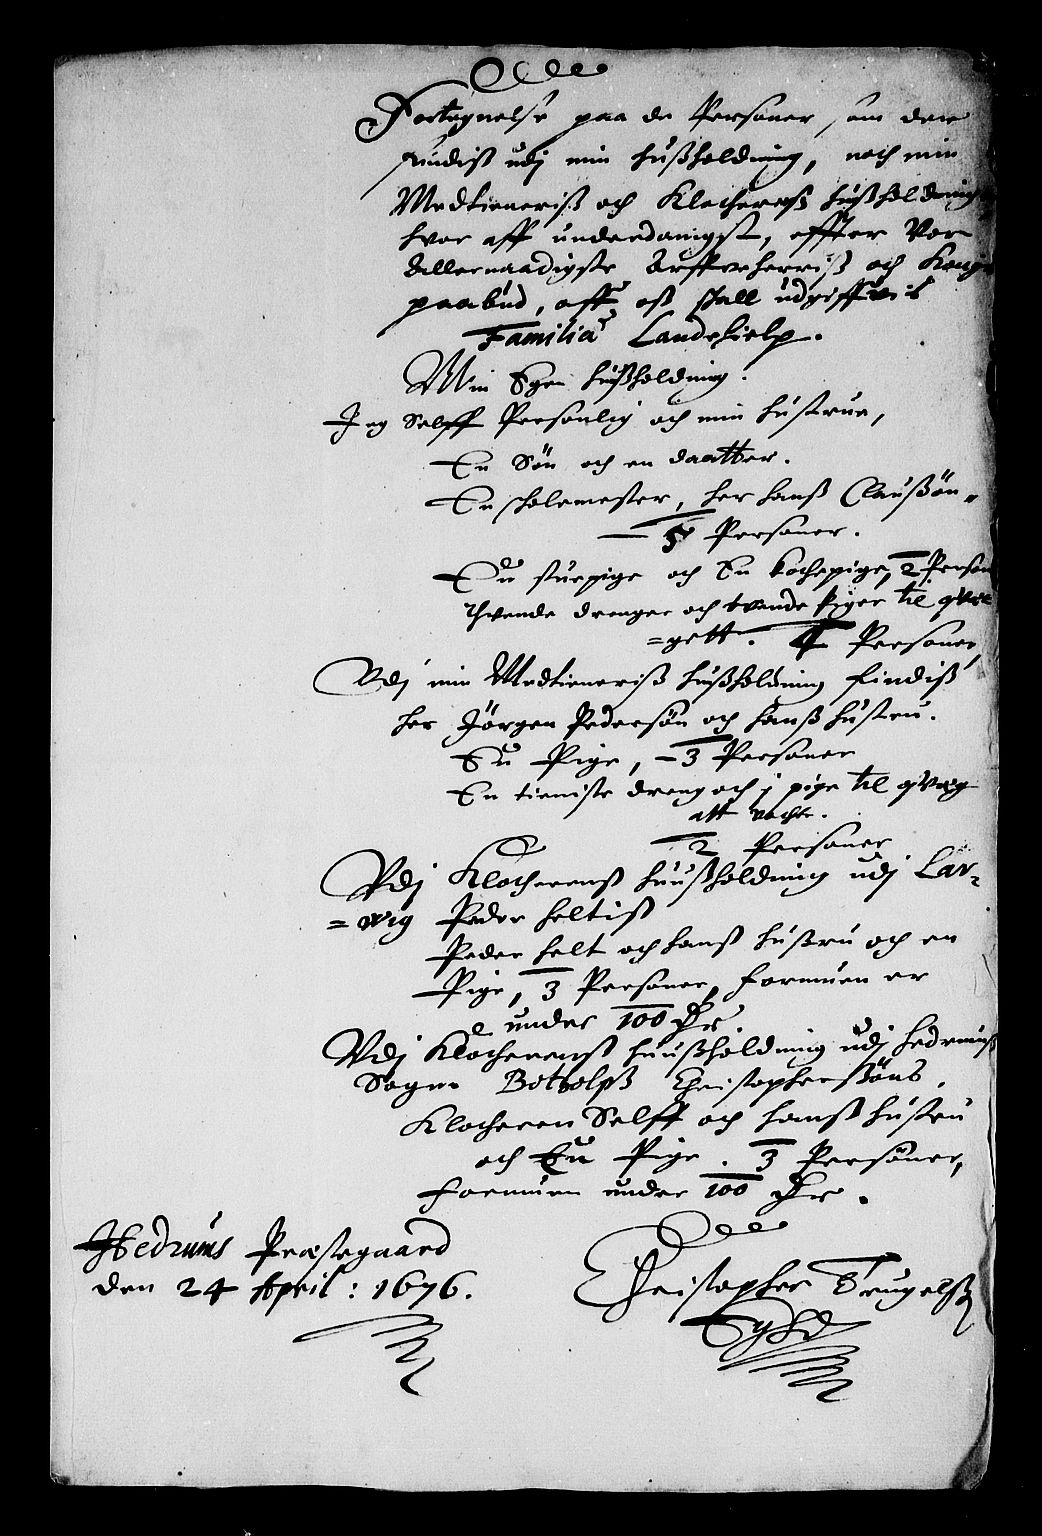 Fortegnelse paa de Personer, som der
findiß udj min hußholdning, noch min
Medtieneriß och Klocherenß hußholdning
hvor aff underdanigst, effter Vor
Allernaadigste Arffveherriß och Kong
paabud, aff oß skall udgiffvis
Familiæ Landehielp.
Min Egen hußholdning.
Jeg Selff Personlig och min hustrue,
En Søn och en daatter.
En skolemester, her hanß Claußøn,
5 Personer.
En stuepige och En kochepige, 2 Person
Thvende drenger och tvende piger til qvæ
=gett. 4 Personer,
Vdj min Medtieneriß hußholdning findiß
her Jörgen Pedersøn och hanß hustru.
En Pige, – 3 Personer
En tieniste dreng och j pige til qvæg
att vachte.
2 Personer
Vdj Klocherenß huußholdning udj Lar-
=vig Peder heltiß
Peder helt och hanß hustru och en
Pige, 3 Personer, formuen er
under 100 Dr
Vdj Klocherenß huußholdning udj hedrumß
Sogn Botholfß Christopherßøns.
Klocheren Selff och hanß hustru
och En Pige. 3 Persöner,
formuen under 100 Dr.
Hedrums Præstegaard
den 24 April: 1676.
Christopher Trugelß